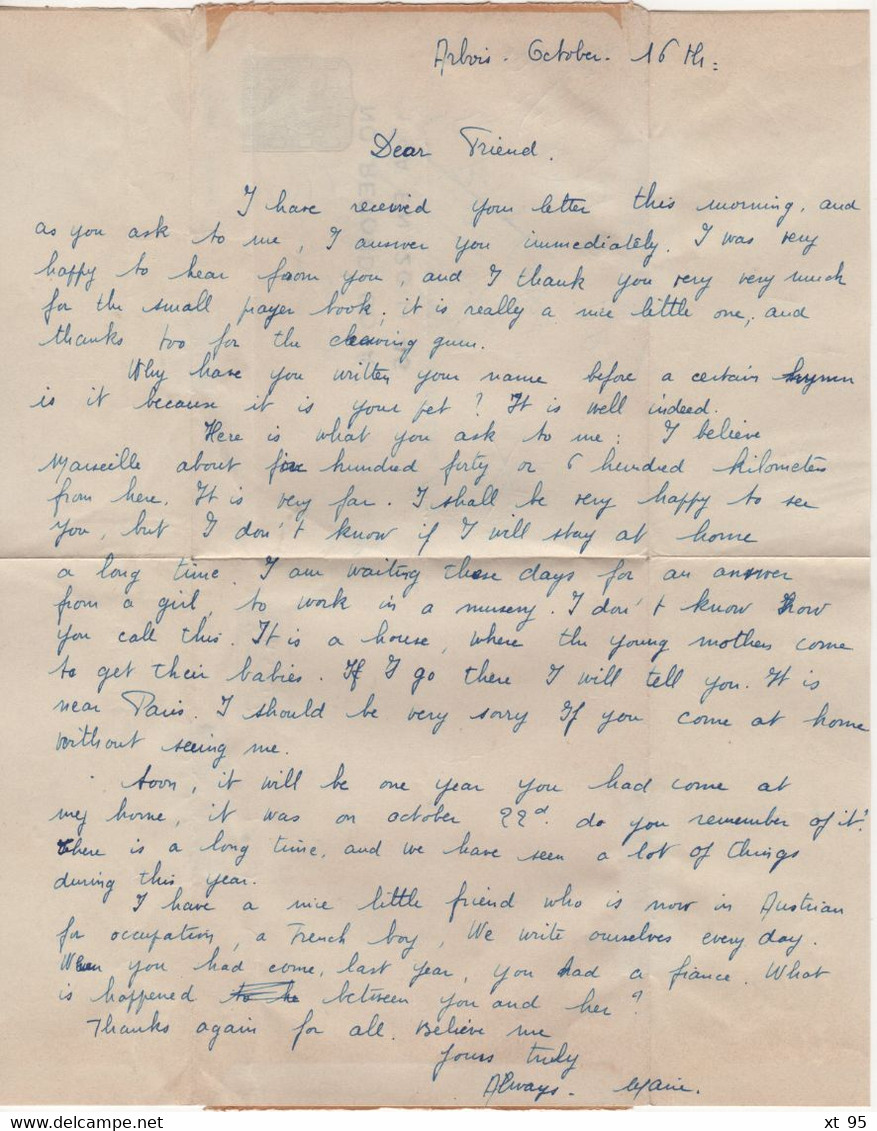 Arbois. October. 16 th:
Dear Friend.
I have received your letter this morning, and
as you ask to me, I answer you immediately. I was very
happy to hear from you, and I thank you very very much
for the small prayer book, it is really a nice little one, and
thanks too for the chewing gum.
Why have you written your name before a certain hymn
is it because it is your pet? It is well indeed.
Here is what you ask to me: I believe
Marseille about five hundred forty or 6 hundred kilometers
from here. It is very far. I shall be very happy to see
you, but I don't know if I will stay at home
a long time. I am waiting these days for an answer
from a girl, to work in a nursery. I don't know how
you call this. It is a house, where the young mothers come
to get their babies. If I go there I will tell you. It is
near Paris. I should be very sorry If you come at home
without seeing me.
Soon, it will be one year you had come at
my home, it was on october 22d. do you remember of it?
there is a long time, and we have seen a lot of things
during this year.
I have a nice little friend who is now in Austrian
for occupation, a French boy, We write ourselves every day.
When you had come, last year, you had a fiance. What
is happened between you and her?
Thanks again for all. Believe me
Yours truly
Always.
xt 95